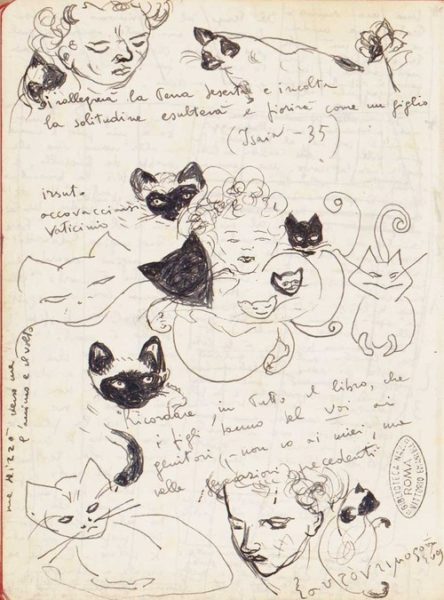 Si rallegrerà la Terra deserta e incolta
la solitudine esulterà e fiorirà come un giglio
(Isaia - 35)
irsuto
accovacciamsi
Vaticinio
Ricordare, in Tutto il libro, che
i figli danno del Voi ai
genitori (- non io ai miei, ma
nelle generazioni precedenti
verso me
l'animo e il volto
BIBLIOTECA NAZ.
ROMA
VITTORIO EMAN